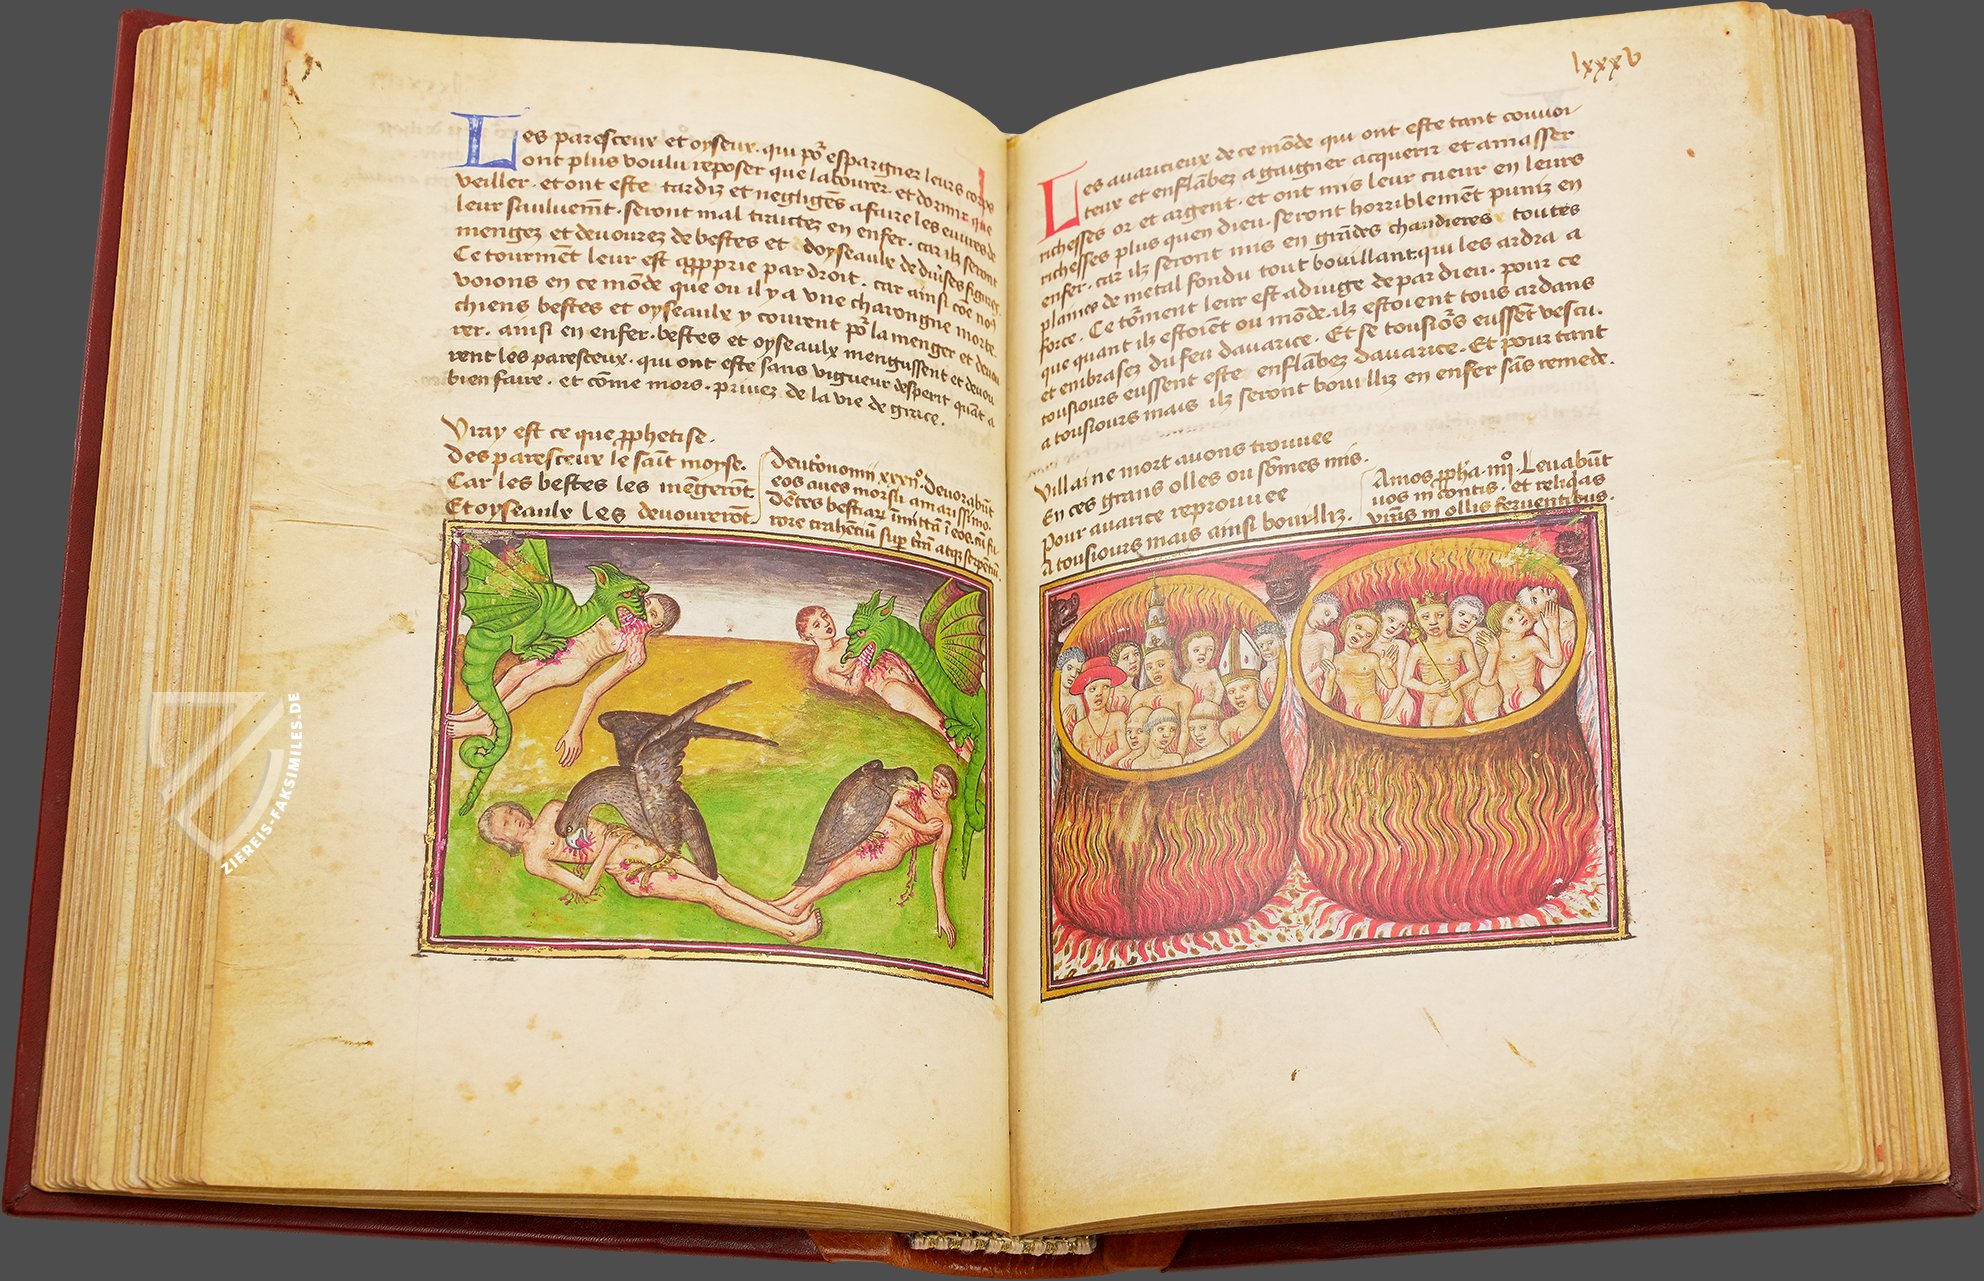 Les paresceux et oyseux . qui põ espargner leurs corps
ont plus voulu reposer que labourer . et dormir que
veiller . et ont este tardiz et negligẽs a faire les euures de
leur sauluemẽt . seront mal traictez en enfer . car ilz seront
mengez et deuourez de bestes et doyseaulx de diũses figures
Ce tourmẽt leur est apropprie par droit . car ainsi cõe noꝰ
voions en ce monde que ou il y a vne charongne morte .
chiens bestes et oyseaulx y courent põ la menger et deuou
rer . ainsi en enfer . bestes et oyseaulx mengussent et deuou
rent les paresceux . qui ont este sans vigueur desperit quãt a
bien faire . et cõme mors . priuez de la vie de grace .
Vray est ce que ꝓphetise .
Des paresceux le saĩt moyse .
Car les bestes les mẽgeront
Et oyseaulx les deuoureront .
Deuteronomii xxxiiº . Deuorabũt
eos aues morsu amarissimo .
Dẽtes bestiarꝝ ĩmittã ĩ eos . cũ fu
rore trahẽtiũ sup̃ trã atqꝫ serpẽtiũ
lxxxv
Les auaricieux de ce mõde qui ont este tant conuoi
teux et enflãbez a gaigner acquerir et amasser
richesses or et argent . et ont mis leur cueur en leurs
richesses plus quen dieu . seront horriblemẽt puniz en
enfer . car ilz seront mis en grãdes chaudieres toutes
plaines de metal fondu tout bouillant . qui les ardra a
force . Ce tõrment leur est adiuge de par dieu . pour ce
que quant ilz estoiẽt ou mõde . ilz estoient tous ardans
et embrasez du feu dauarice . Et se tousiõrs eussẽt vescu .
tousiours eussent este enflãbez dauarice . Et pour tant
a tousiours mais ilz seront bouilliz en enfer sãs remede .
Villaine mort auons trouuee
En ces grans olles ou sõmes mis .
Pour auarice reprouuee
A tousiours mais ainsi bouilliz .
Amos ꝓpha . iiiiº . Leuabũt
uos in cõntis . et reliq̃as
vr̃as in ollis feruentibus .
ZIEREIS-FAKSIMILES.DE